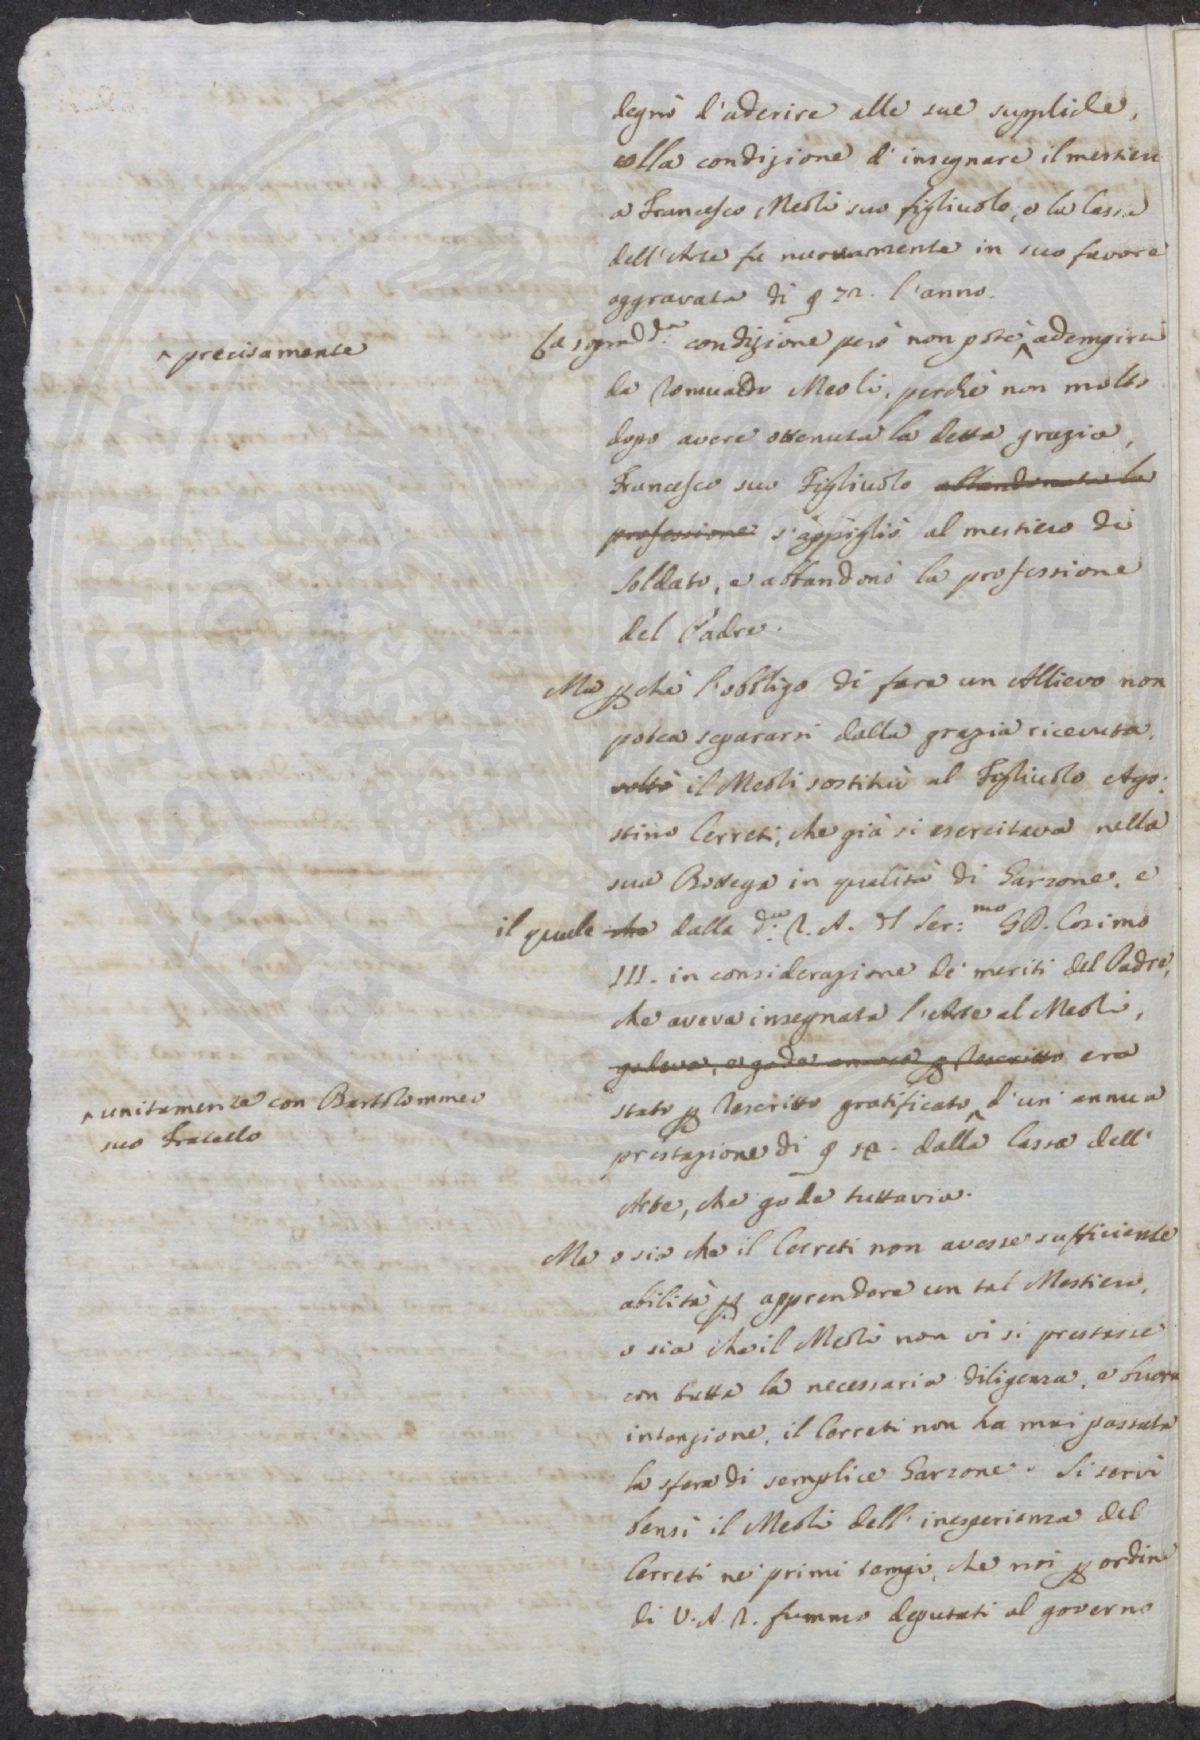 degnò l'aderire alle sue suppliche,
colla condizione d'insegnare il mestiere
a Francesco Meoli suo figliuolo, e la Cassa
dell'Arte fu nuovamente in suo favore
aggravata di 72. l'anno.
La soprad.a condizione però non potè ^ adempirsi
^ precisamente
da Romualdo Meoli, perchè non molto
dopo avere ottenuta la detta grazia,
Francesco suo Figliuolo abbandonata la
professione s'appigliò al mestiero di
Soldato, e abbandonò la professione
del Padre.
Ma p chè l'obbligo di fare un Allievo non
potea separarsi dalla grazia ricevuta,
voltò il Meoli sostituì al Figliuolo Ago:
stino Cerreti, che già si esercitava nella
sua Bottega in qualità di Garzone, e
il quale che dalla d.a R. A. del Ser:mo G.D. Cosimo
III. in considerazione de' meriti del Padre,
che aveva insegnata l'Arte al Meoli,
godeva, e gode ancora p Rescritto era
stato p Rescritto gratificato ^ d'un' annua
^ unitamente con Bartolommeo
suo Fratello
prestazione di dalla Cassa dell'
Arte, che gode tuttavia.
Ma o sia che il Cerreti non avesse sufficiente
abilità p apprendere un tal Mestiero,
o sia che il Meoli non vi si prestasse
con tutta la necessaria diligenza, e buona
intenzione, il Cerreti non ha mai passata
la sfera di semplice Garzone. Si servì
bensì il Meoli dell'inesperienza del
Cerreti ne' primi tempi, che noi p ordine
di V. A. R. fummo deputati al governo